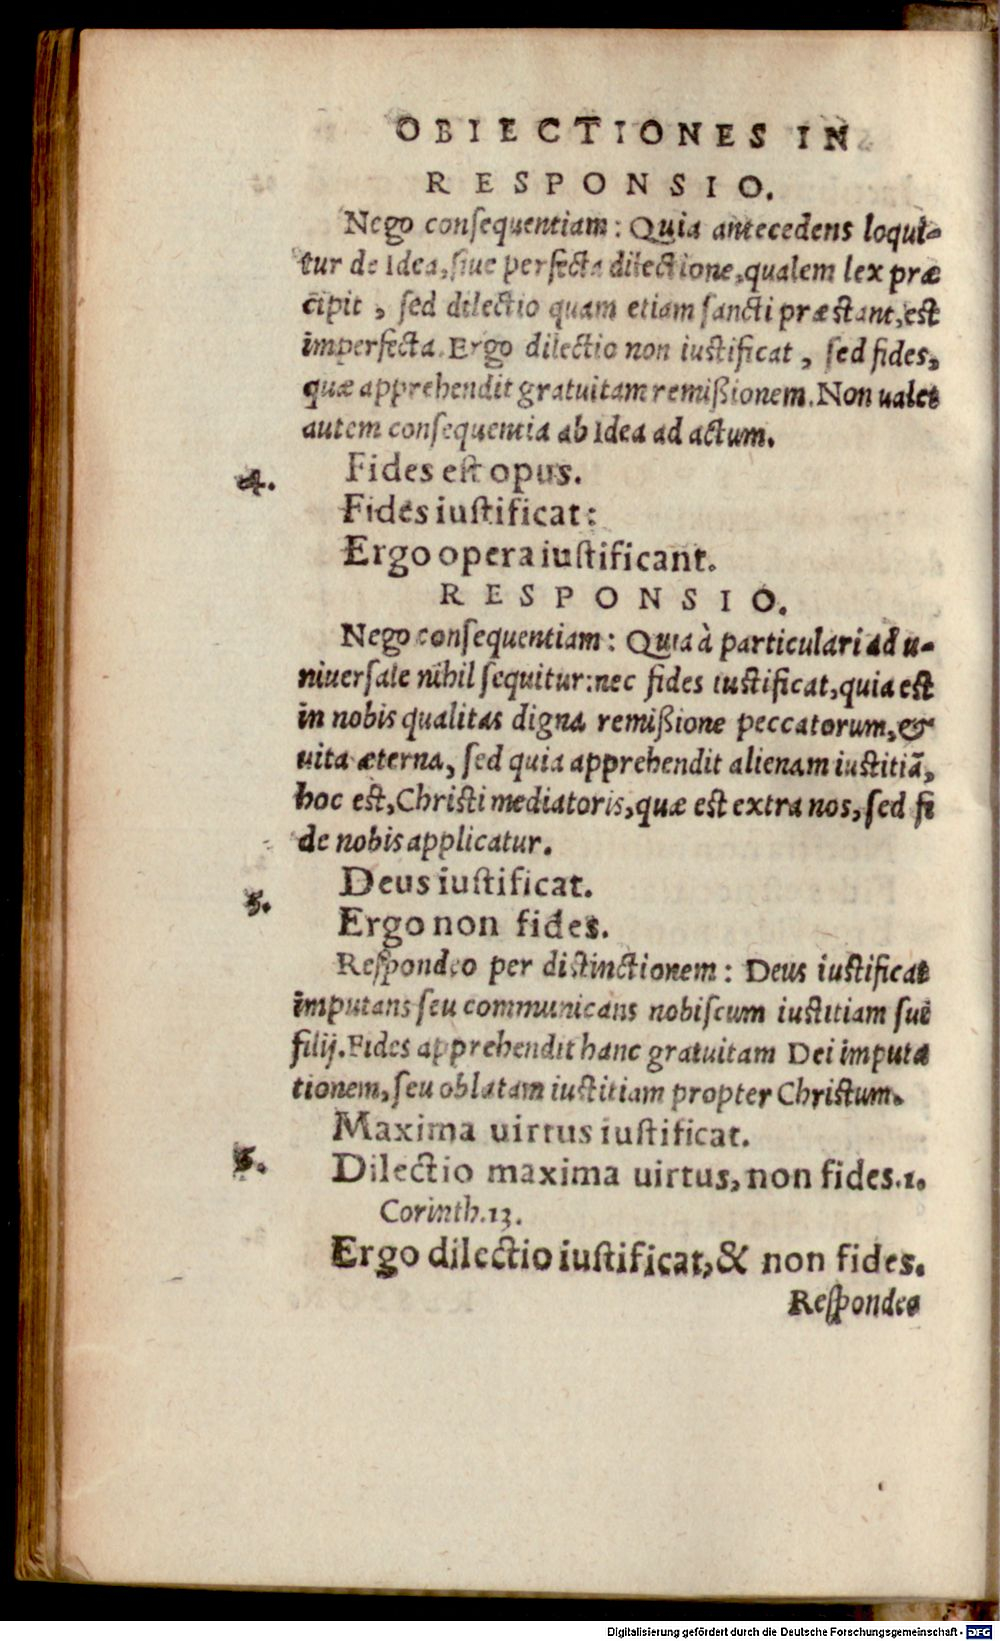 OBIECTIONES IN
RESPONSIO.
Nego conſequentiam: Quia antecedens loqui-
tur de Idea, ſiue perfecta dilectione, qualem lex præ
cipit, ſed dilectio quam etiam ſancti præstant, est
imperfecta. Ergo dilectio non iustificat, ſed fides,
quæ apprehendit gratuitam remißionem. Non ualet
autem conſequentia ab Idea ad actum.
4. Fides eſt opus.
Fides iuſtificat:
Ergo opera iuſtificant.
RESPONSIO.
Nego conſequentiam: Quia à particulari ad u-
niuerſale nihil ſequitur: nec fides iustificat, quia est
in nobis qualitas digna remißione peccatorum, &
uita æterna, ſed quia apprehendit alienam iustitiã,
hoc est, Christi mediatoris, quæ est extra nos, ſed fi
de nobis applicatur.
5. Deus iuſtificat.
Ergo non fides.
Reſpondeo per distinctionem: Deus iustificat
imputans ſeu communicans nobiſcum iustitiam ſui
filij. Fides apprehendit hanc gratuitam Dei imputa
tionem, ſeu oblatam iustitiam propter Christum.
Maxima uirtus iuſtificat.
6. Dilectio maxima uirtus, non fides. 1.
Corinth. 13.
Ergo dilectio iuſtificat, & non fides.
Reſpondeo
Digitalisierung gefördert durch die Deutsche Forschungsgemeinschaft - DFG